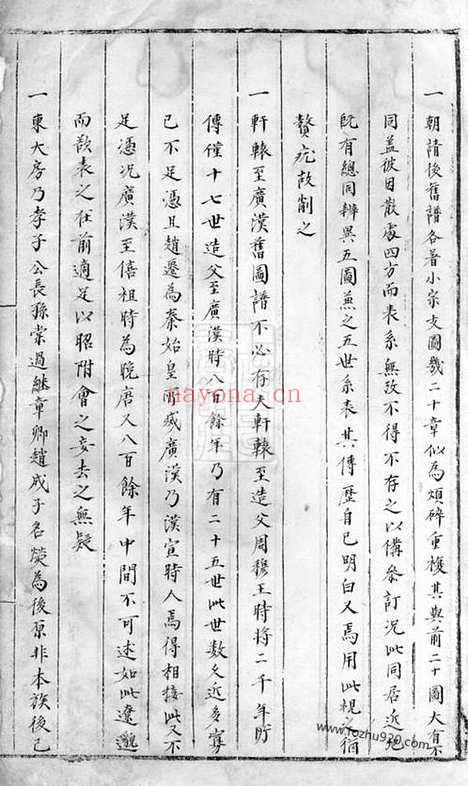 一朝請後舊譜各著小宗支圖幾二十章似為煩碎重複其與前二十圖大有不
同蓋彼因散處四方而表系無考不得不存之以備參訂況此同居近地
既有總同辨異五圖兼之五世系表其傳歷自已明白又焉用此視之猶
贅疣故削之
一軒轅至廣漢舊圖譜不必存夫軒轅至造父周穆王時將二千年所
傳僅十七世造父至廣漢時八百餘年乃有二十五世此世數久近多寡
已不足憑且趙遷為秦始皇所滅廣漢乃漢宣時人焉得相接此又不
足憑況廣漢至僖祖時為晚唐又八百餘年中間不可述如此遼邈
而欲表之在前適足以昭附會之妄去之無疑
一東大房乃孝子公長孫棠過繼章卿趙成子名
為後原非本族後已
nayona.cn
www.fozhu920.com